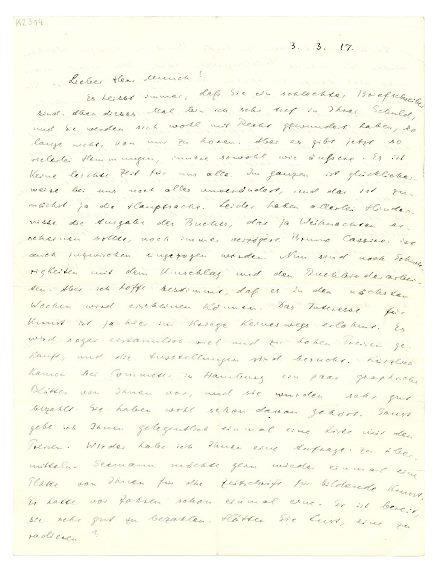 K2394
3. 3. 17.
Lieber Herr Munch!
Es heisst immer, daß Sie ein schlechter Briefschreiber
sind. Aber dieses Mal bin ich sehr tief in Ihrer Schuld,
und Sie werden sich wohl mit Recht gewundert haben, so
lange nichts von mir zu hören. Aber es gibt jetzt so
vielerlei Hemmungen, innere sowohl wie äußere. Es ist
keine leichte Zeit für uns alle. Im ganzen ist glücklicher-
weise bei uns noch alles unverändert, und das ist zu-
nächst ja die Hauptsache. Leider haben allerlei Hinder-
nisse die Ausgabe des Buches, das ja Weihnachten er-
scheinen sollte, noch immer verzögert. Bruno Cassirer ist
auch inzwischen eingezogen worden. Nun sind noch Schwie-
rigkeiten mit dem Umschlag und den
ten. Aber ich hoffe bestimmt, daß es in den nächsten
Wochen wird erscheinen können. Das Interesse für
Kunst ist ja hier im Kriege keineswegs erlahmt. Es
wird sogar erstaunlich viel und zu hohen Preisen ge-
kauft, und die Ausstellungen sind besucht.
kamen bei Commeter in Hamburg ein paar graphische
Blätter von Ihnen vor, und sie wurden sehr gut
bezahlt. Sie haben wohl schon davon gehört. Sonst
gebe ich Ihnen gelegentlich einmal eine Liste mit den
Preisen. Wieder habe ich Ihnen eine Anfrage zu über-
mitteln. Seemann möchte gern wieder einmal eine
Platte von Ihnen für die Zeitschrift für bildende Kunst.
Er hatte vor Jahren schon einmal eine. Er ist bereit,
sie sehr gut zu bezahlen. Hätten Sie Lust, eine zu
radieren?